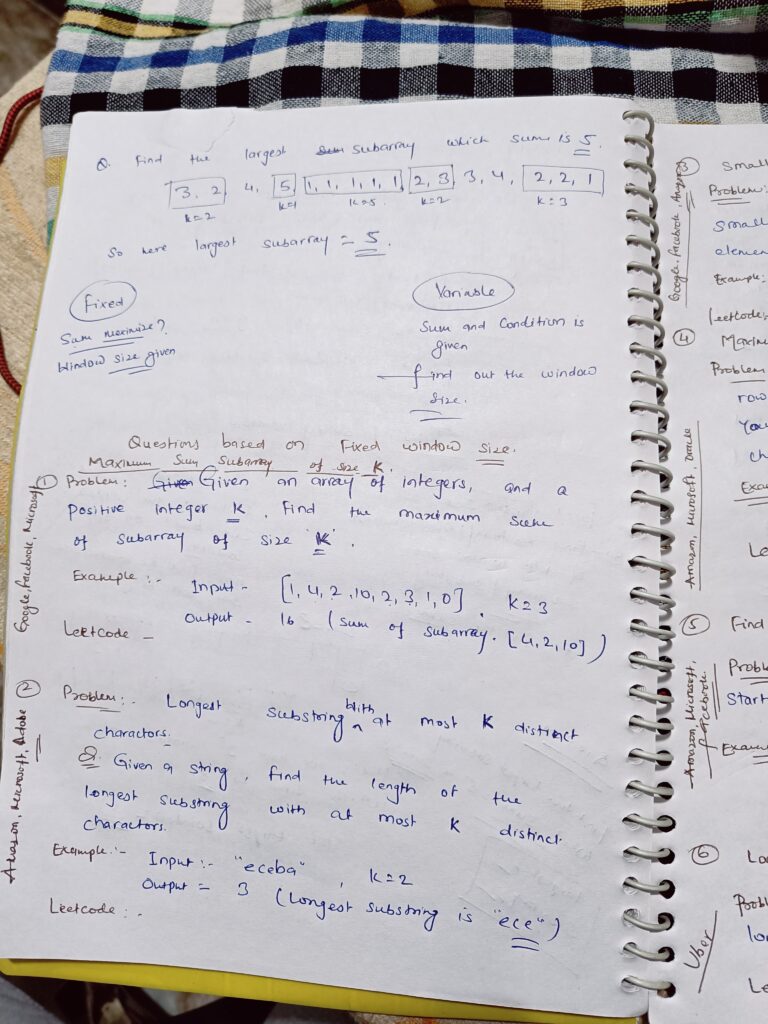 Q. Find the largest subarray which sum is 5.
3, 2 4, 5 1, 1, 1, 1, 1 2, 3 3, 4, 2, 2, 1
k=2 k=1 k=5 k=2 k=3
So here largest subarray = 5.
Fixed
Sum maximize?
Window size given
Variable
Sum and Condition is
given
find out the window
size.
Questions based on Fixed window size.
Maximum Sum Subarray of size K.
Google, Facebook, Microsoft
① Problem: Given Given an array of integers, and a
positive integer K. Find the maximum sum
of subarray of size 'K'.
Example :- Input - [1, 4, 2, 10, 2, 3, 1, 0], K=3
Output - 16 (sum of subarray. [4, 2, 10])
Leetcode -
Amazon, Microsoft, Adobe
② Problem:- Longest substring with at most K distinct
charactors.
Q. Given a string, find the length of the
longest substring with at most K distinct
charactors.
Example:- Input :- "eceba", k=2
Output = 3 (Longest substring is "ece")
Leetcode : -
Google, Facebook, Amazon
③ Small
Problem:
Small
elemen
Example:
leetcode,
Amazon, Microsoft, Oracle
④ Maxim
Problem
row
You
ch
Exam
Le
Amazon, Microsoft,
Facebook.
⑤ Find
Probl
Start
Exam
Uber
⑥ Lo
Probl
lo
Le